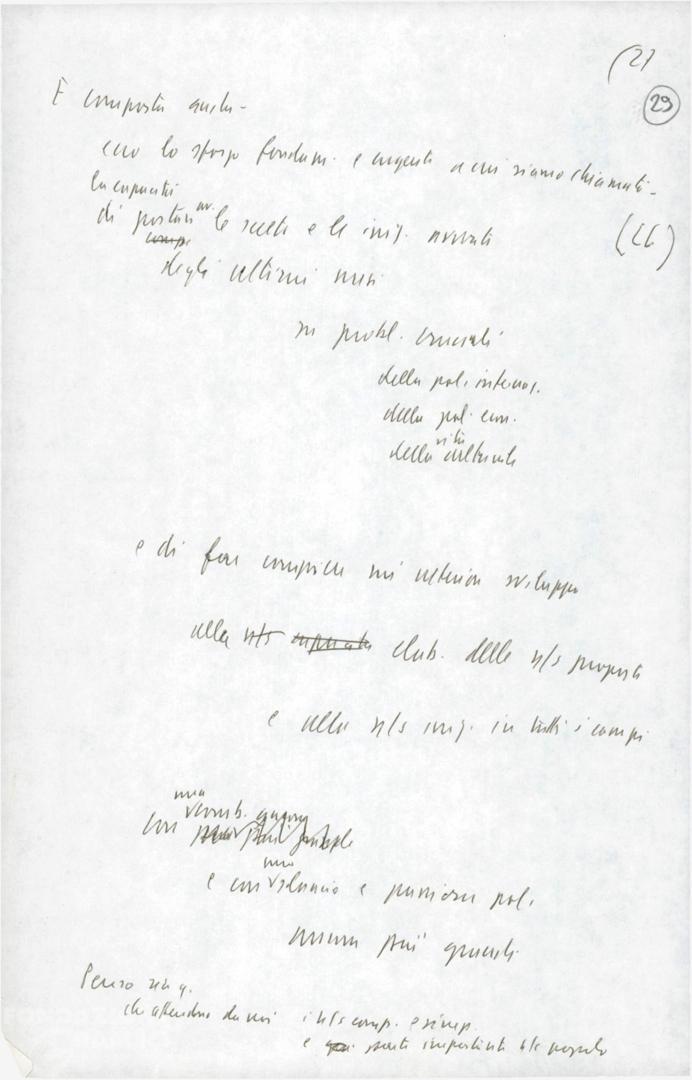 (2)
29
È composta anche -
ecco lo sforzo fondam. e urgente a cui siamo chiamati -
la capacità
di portare av. le scelte e le iniz. avviate
(LL)
degli ultimi mesi
su probl. cruciali
della pol. internaz.
della pol. econ.
della vita culturale
e di far compiere un ulteriore sviluppo
alla n/s elab. delle n/s proposte
e alla n/s iniz. in tutti i campi
con una
e con uno slancio e passione pol.
ancora più grandi
Penso sia q.
che attendono da noi i n/s comp. e simp.
e parti importanti del popolo